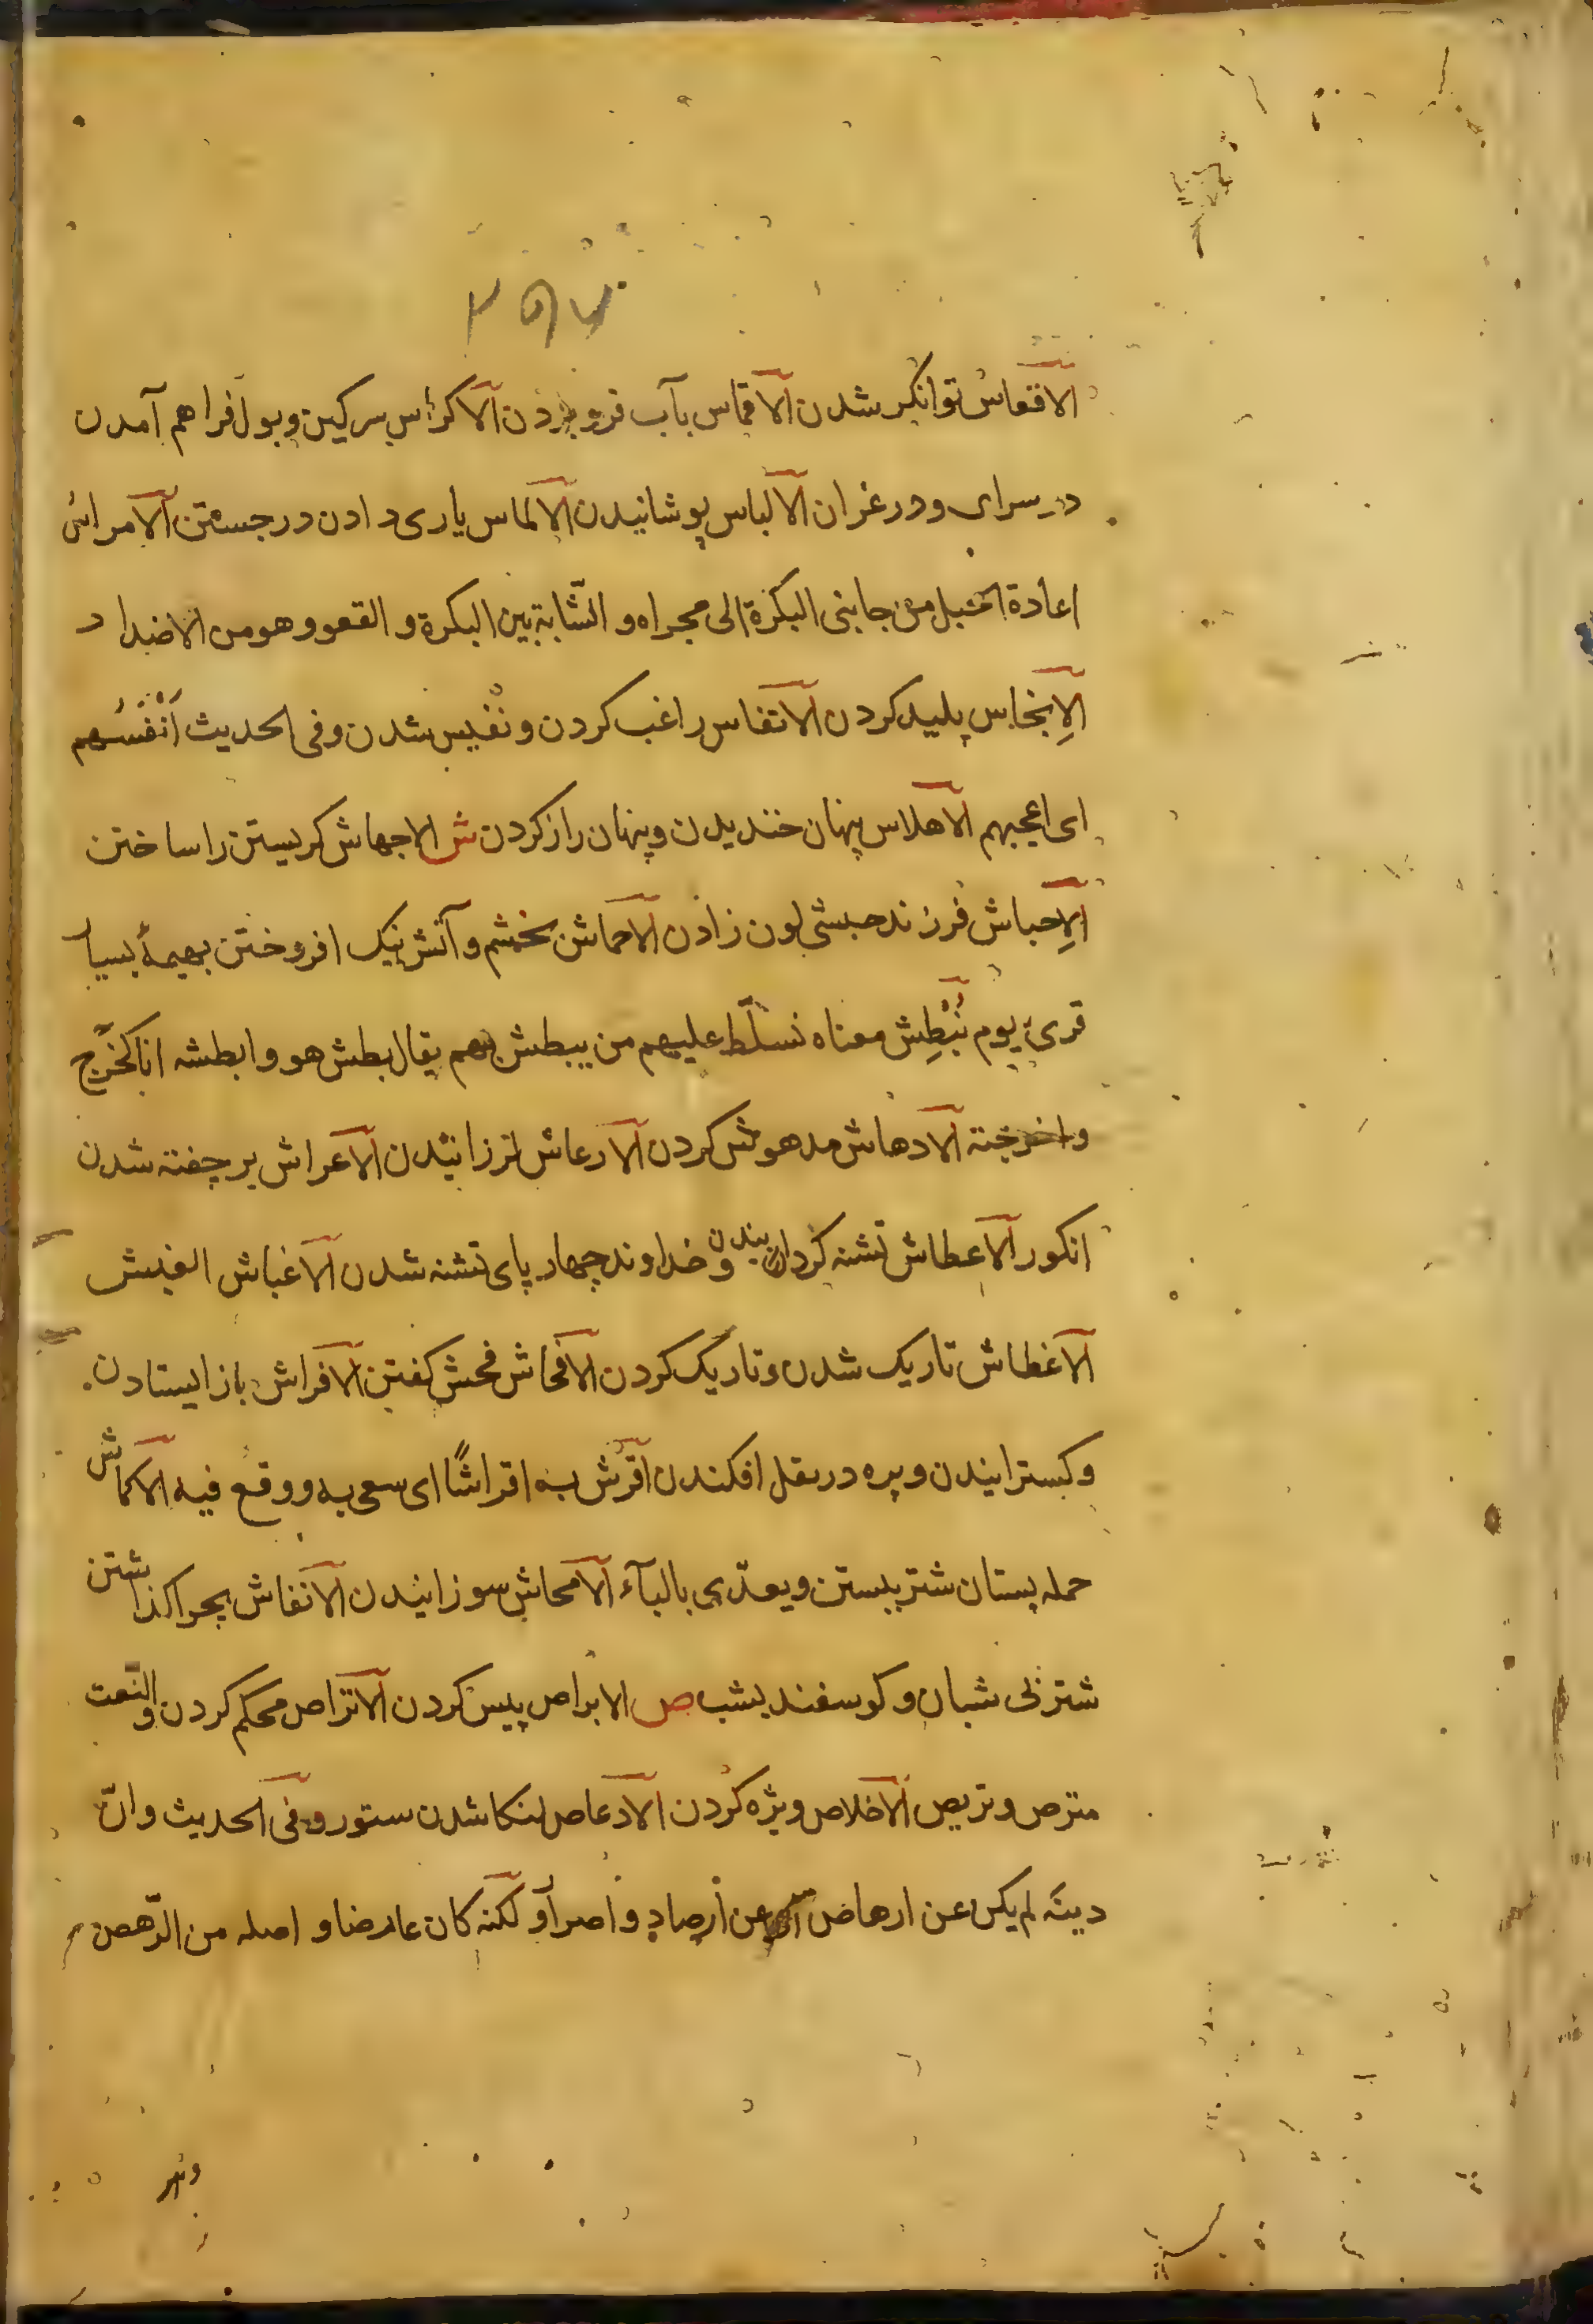 الاقعاس توانکر شدن الاقماس بآب فرو بردن الاکراس سرکین و بول فراهم آمدن
در سرای و در غران الالباس پوشانیدن الالماس یاری دادن در جستن الامراس
اعادة الحبل من جانبی البکرة الی مجراه و النّشابة بین البکرة و القعو و هو من الاضداد
الاِنجاس پلید کردن الانفاس راغب کردن و نفیس شدن و فی الحدیث اَنْفَسُهم
ای اعجبهم الاهلاس پنهان خندیدن و پنهان راز کردن ش الاجهاش کریستن را ساختن
الاِحباش فرزند حبشی لون زادن الاحماش بخشم و آتش نیک افروختن بهیمهٔ بسیار
قریٔ یوم نُبْطِش معناه نسلّط علیهم من یبطش بهم یقال بطش هو و ابطشه انا کخرج
و اخرجته الادهاش مدهوش کردن الارعاش لرزانیدن الاعراش بر چفته شدن
انکور الاعطاش تشنه کردانیدن و خداوند چهار پای تشنه شدن الاغباش الغبش
الاغطاش تاریک شدن و تاریک کردن الافحاش فحش کفتن الافراش باز ایستادن
و کسترانیدن و پره در قفل افکندن اَقرش به اقراشًا ای سعی به و وقع فیه الاکماش
حمله پستان شتر ببستن و یعدّی بالبآء الامحاش سوزانیدن الانفاش بچرا کذاشتن
شتر بی شبان و کوسفند بشب ص الابراص پیس کردن الاتراص محکم کردن و النّعت
مترص و تریص الاخلاص ویژه کردن الادعاص لنکا شدن ستور و فی الحدیث و انّ
دینَه لم یکن عن ارهاص ای عن اِرصادٍ و اصرار و لکنّه کان عارضا و اصله من الرّهص